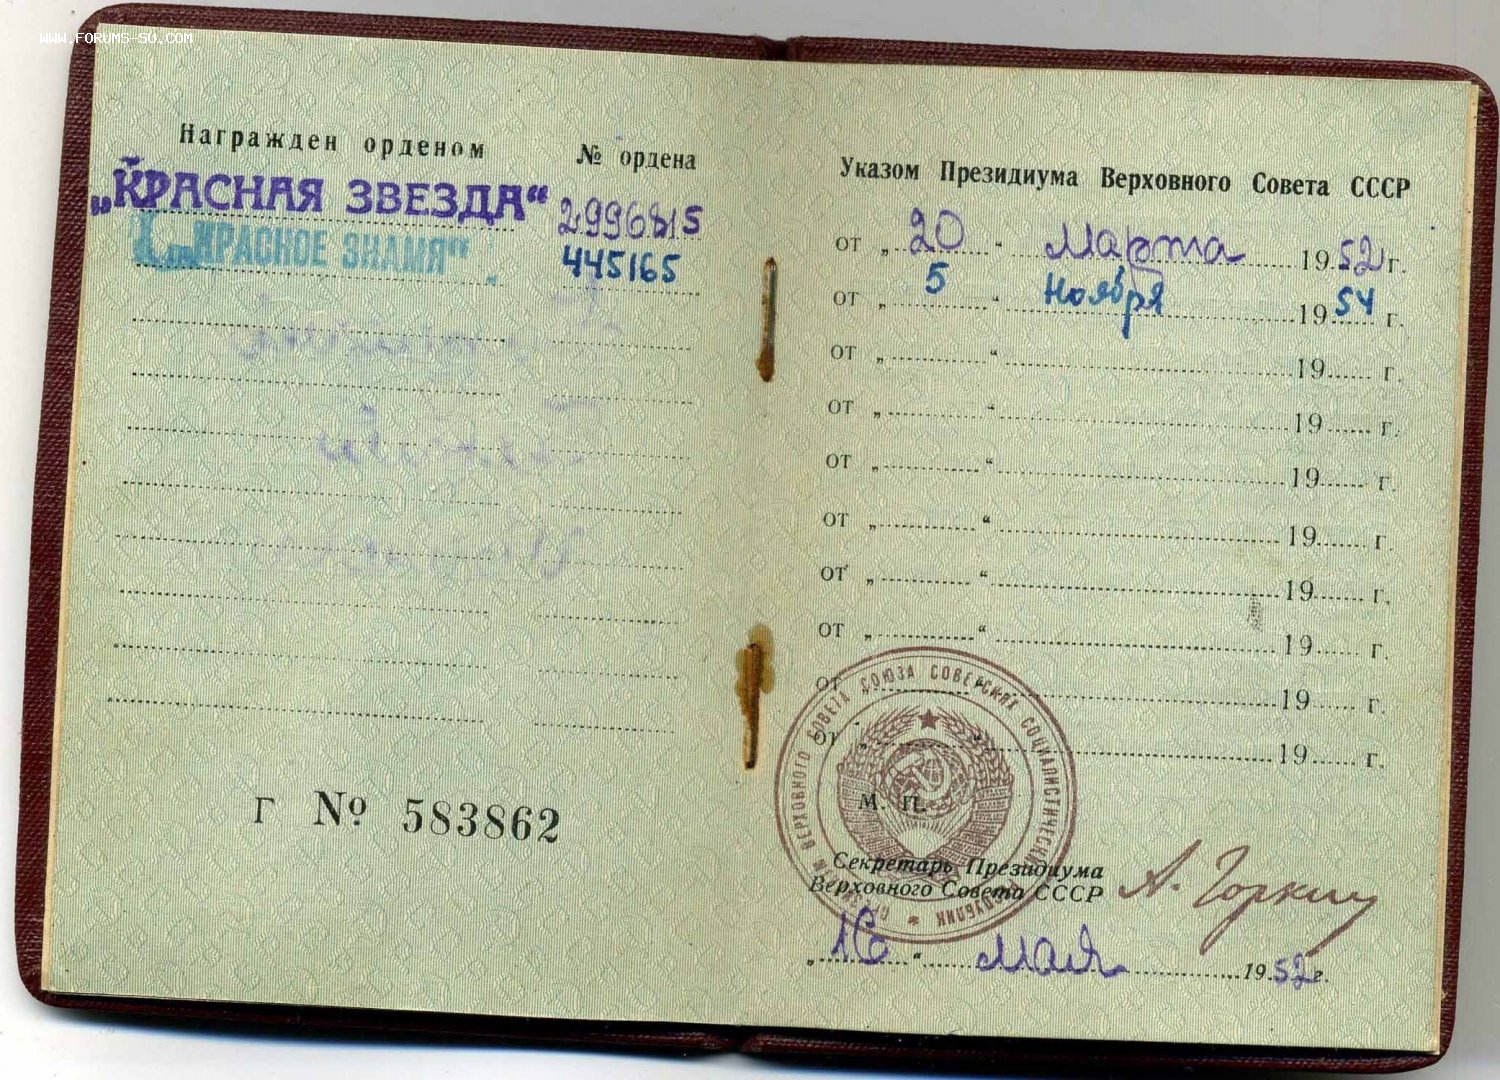 WWW.FORUMS-SU.COM
Награжден орденом № ордена
„КРАСНАЯ ЗВЕЗДА“ 2996815
„КРАСНОЕ ЗНАМЯ“ 445165
Г № 583862
Указом Президиума Верховного Совета СССР
от „ 20 “ Марта 1952 г.
от „ 5 “ Ноября 1954 г.
от „ “ 19 г.
от „ “ 19 г.
от „ “ 19 г.
от „ “ 19 г.
от „ “ 19 г.
от „ “ 19 г.
от „ “ 19 г.
от „ “ 19 г.
ПРЕЗИДИУМ ВЕРХОВНОГО СОВЕТА СОЮЗА СОВЕТСКИХ СОЦИАЛИСТИЧЕСКИХ РЕСПУБЛИК
М. П.
Секретарь Президиума
Верховного Совета СССР А. Горкин
„ 16 “ мая 1952 г.